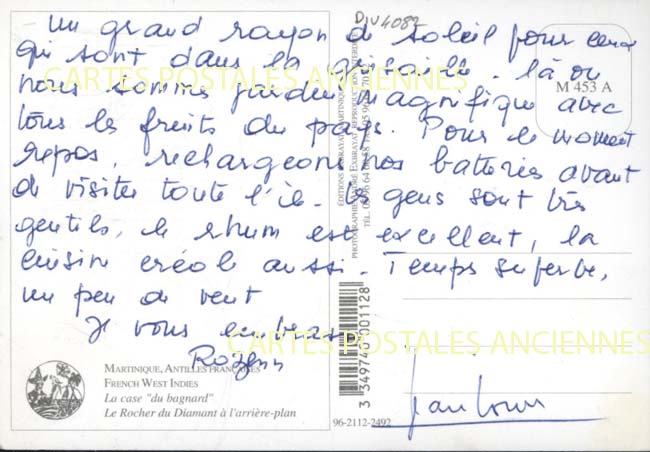 DIV4082
Un grand rayon de soleil pour ceux
qui sont dans la grisaille. là où
CARTES POSTALES ANCIENNES
M 453 A
nous sommes jardin magnifique avec
tous les fruits du pays. Pour le moment
repos, rechargeons nos batteries avant
de visiter toute l'île. les gens sont très
gentils, le rhum est excellent, la
cuisine créole aussi. Temps superbe,
un peu de vent
Je vous embrasse
CARTES POSTALES ANCIENNES
MARTINIQUE, ANTILLES FRANÇAISES
FRENCH WEST INDIES
La case "du bagnard"
Le Rocher du Diamant à l'arrière-plan
3 349743 001128
96-2112-2492